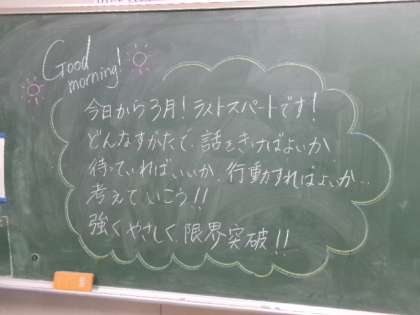 Good
morning!
今日から3月!ラストスパートです!
どんなすがたで、話をきけばよいか
待っていればいいか、行動すればよいか…
考えていこう!!
強くやさしく限界突破!!